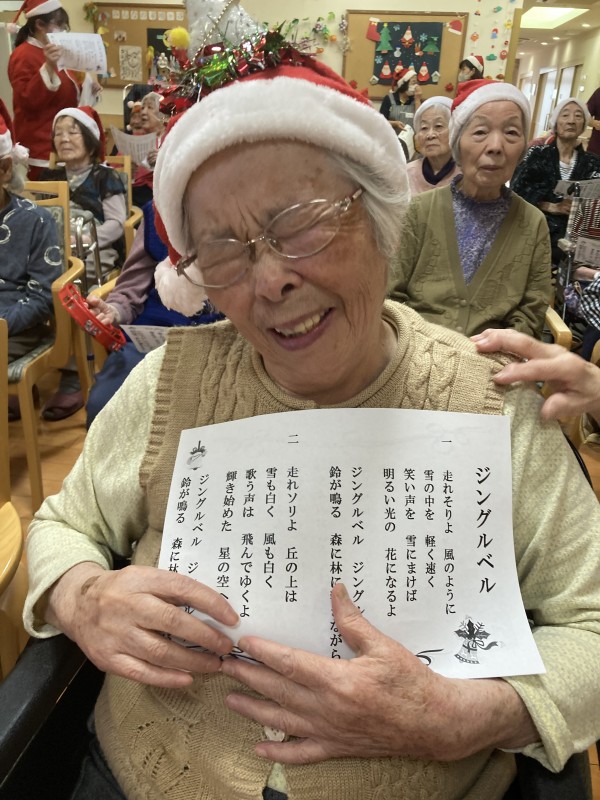 ジングルベル
一
走れそりよ 風のように
雪の中を 軽く速く
笑い声を 雪にまけば
明るい光の 花になるよ
ジングルベル ジングル
鈴が鳴る 森に林に ながら
二
走れソリよ 丘の上は
雪も白く 風も白く
歌う声は 飛んでゆくよ
輝き始めた 星の空へ
ジングルベル ジ
鈴が鳴る 森に林